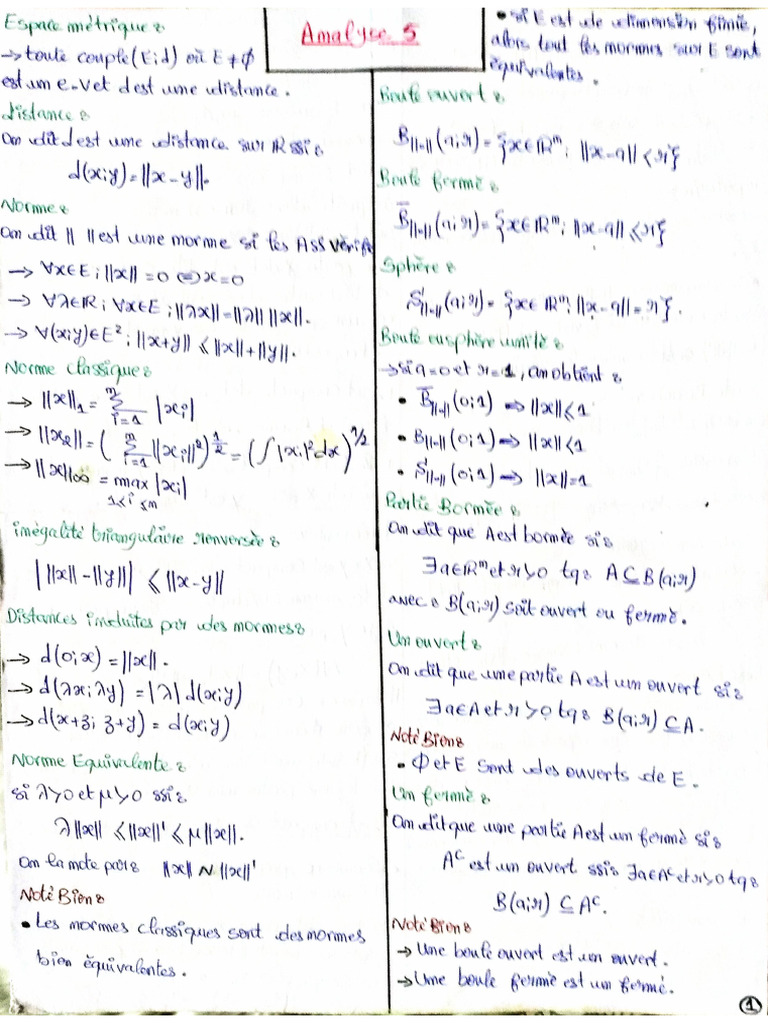 Analyse 5
Espace métrique :
→ toute couple (E; d) où E ≠ ∅
est un e-v et d est une distance.
distance :
On dit d est une distance sur ℝ ssi :
d(x; y) = ||x - y||.
Norme :
On dit || || est une norme si les Ass vérifie
→ ∀x∈E; ||x|| = 0 ⇔ x = 0
→ ∀λ∈ℝ; ∀x∈E; ||λx|| = ||λ|| ||x||.
→ ∀(x;y)∈E²; ||x+y|| ≤ ||x|| + ||y||.
Norme classique :
→ ||x||₁ = Σ_{i=1}^{n} |xᵢ|
→ ||x₂|| = ( Σ_{i=1}^{n} ||xᵢ||² )^{1/2} = ( ∫ |xᵢ|² dx )^{1/2}
→ ||x||∞ = max_{1≤i≤n} |xᵢ|
inégalité triangulaire renversée :
| ||x|| - ||y|| | ≤ ||x - y||
Distances induites par des normes :
→ d(0; x) = ||x||.
→ d(λx; λy) = |λ| d(x; y)
→ d(x+z; z+y) = d(x; y)
Norme Equivalente :
si λ>0 et μ>0 ssi :
λ||x|| ≤ ||x||' ≤ μ||x||.
On la note par : ||x|| N ||x||'
Noté Bien :
• Les normes classiques sont des normes
bien équivalentes.
• si E est de dimension finie,
alors tout les normes sur E sont
équivalentes.
Boule ouvert :
B_{||·||}(a; r) = {x∈ℝⁿ; ||x-a|| < r}
Boule fermé :
B̄_{||·||}(a; r) = {x∈ℝⁿ; ||x-a|| ≤ r}
Sphère :
S_{||·||}(a; r) = {x∈ℝⁿ; ||x-a|| = r}.
Boule ou sphère unité :
→ si a=0 et r=1, on obtient :
• B̄_{||·||}(0; 1) → ||x|| ≤ 1
• B_{||·||}(0; 1) → ||x|| < 1
• S_{||·||}(0; 1) → ||x|| = 1
Partie Bornée :
On dit que A est bornée si :
∃a∈ℝⁿ et r>0 tq : A ⊆ B(a; r)
avec : B(a; r) soit ouvert ou fermé.
Un ouvert :
On dit que une partie A est un ouvert si :
∃a∈A et r>0 tq : B(a; r) ⊆ A.
Noté Bien :
• ∅ et E sont des ouverts de E.
Un fermé :
On dit que une partie A est un fermé si :
Aᶜ est un ouvert ssi : ∃a∈Aᶜ et r>0 tq :
B(a; r) ⊆ Aᶜ.
Noté Bien :
→ Une boule ouvert est un ouvert.
→ Une boule fermé est un fermé.
1